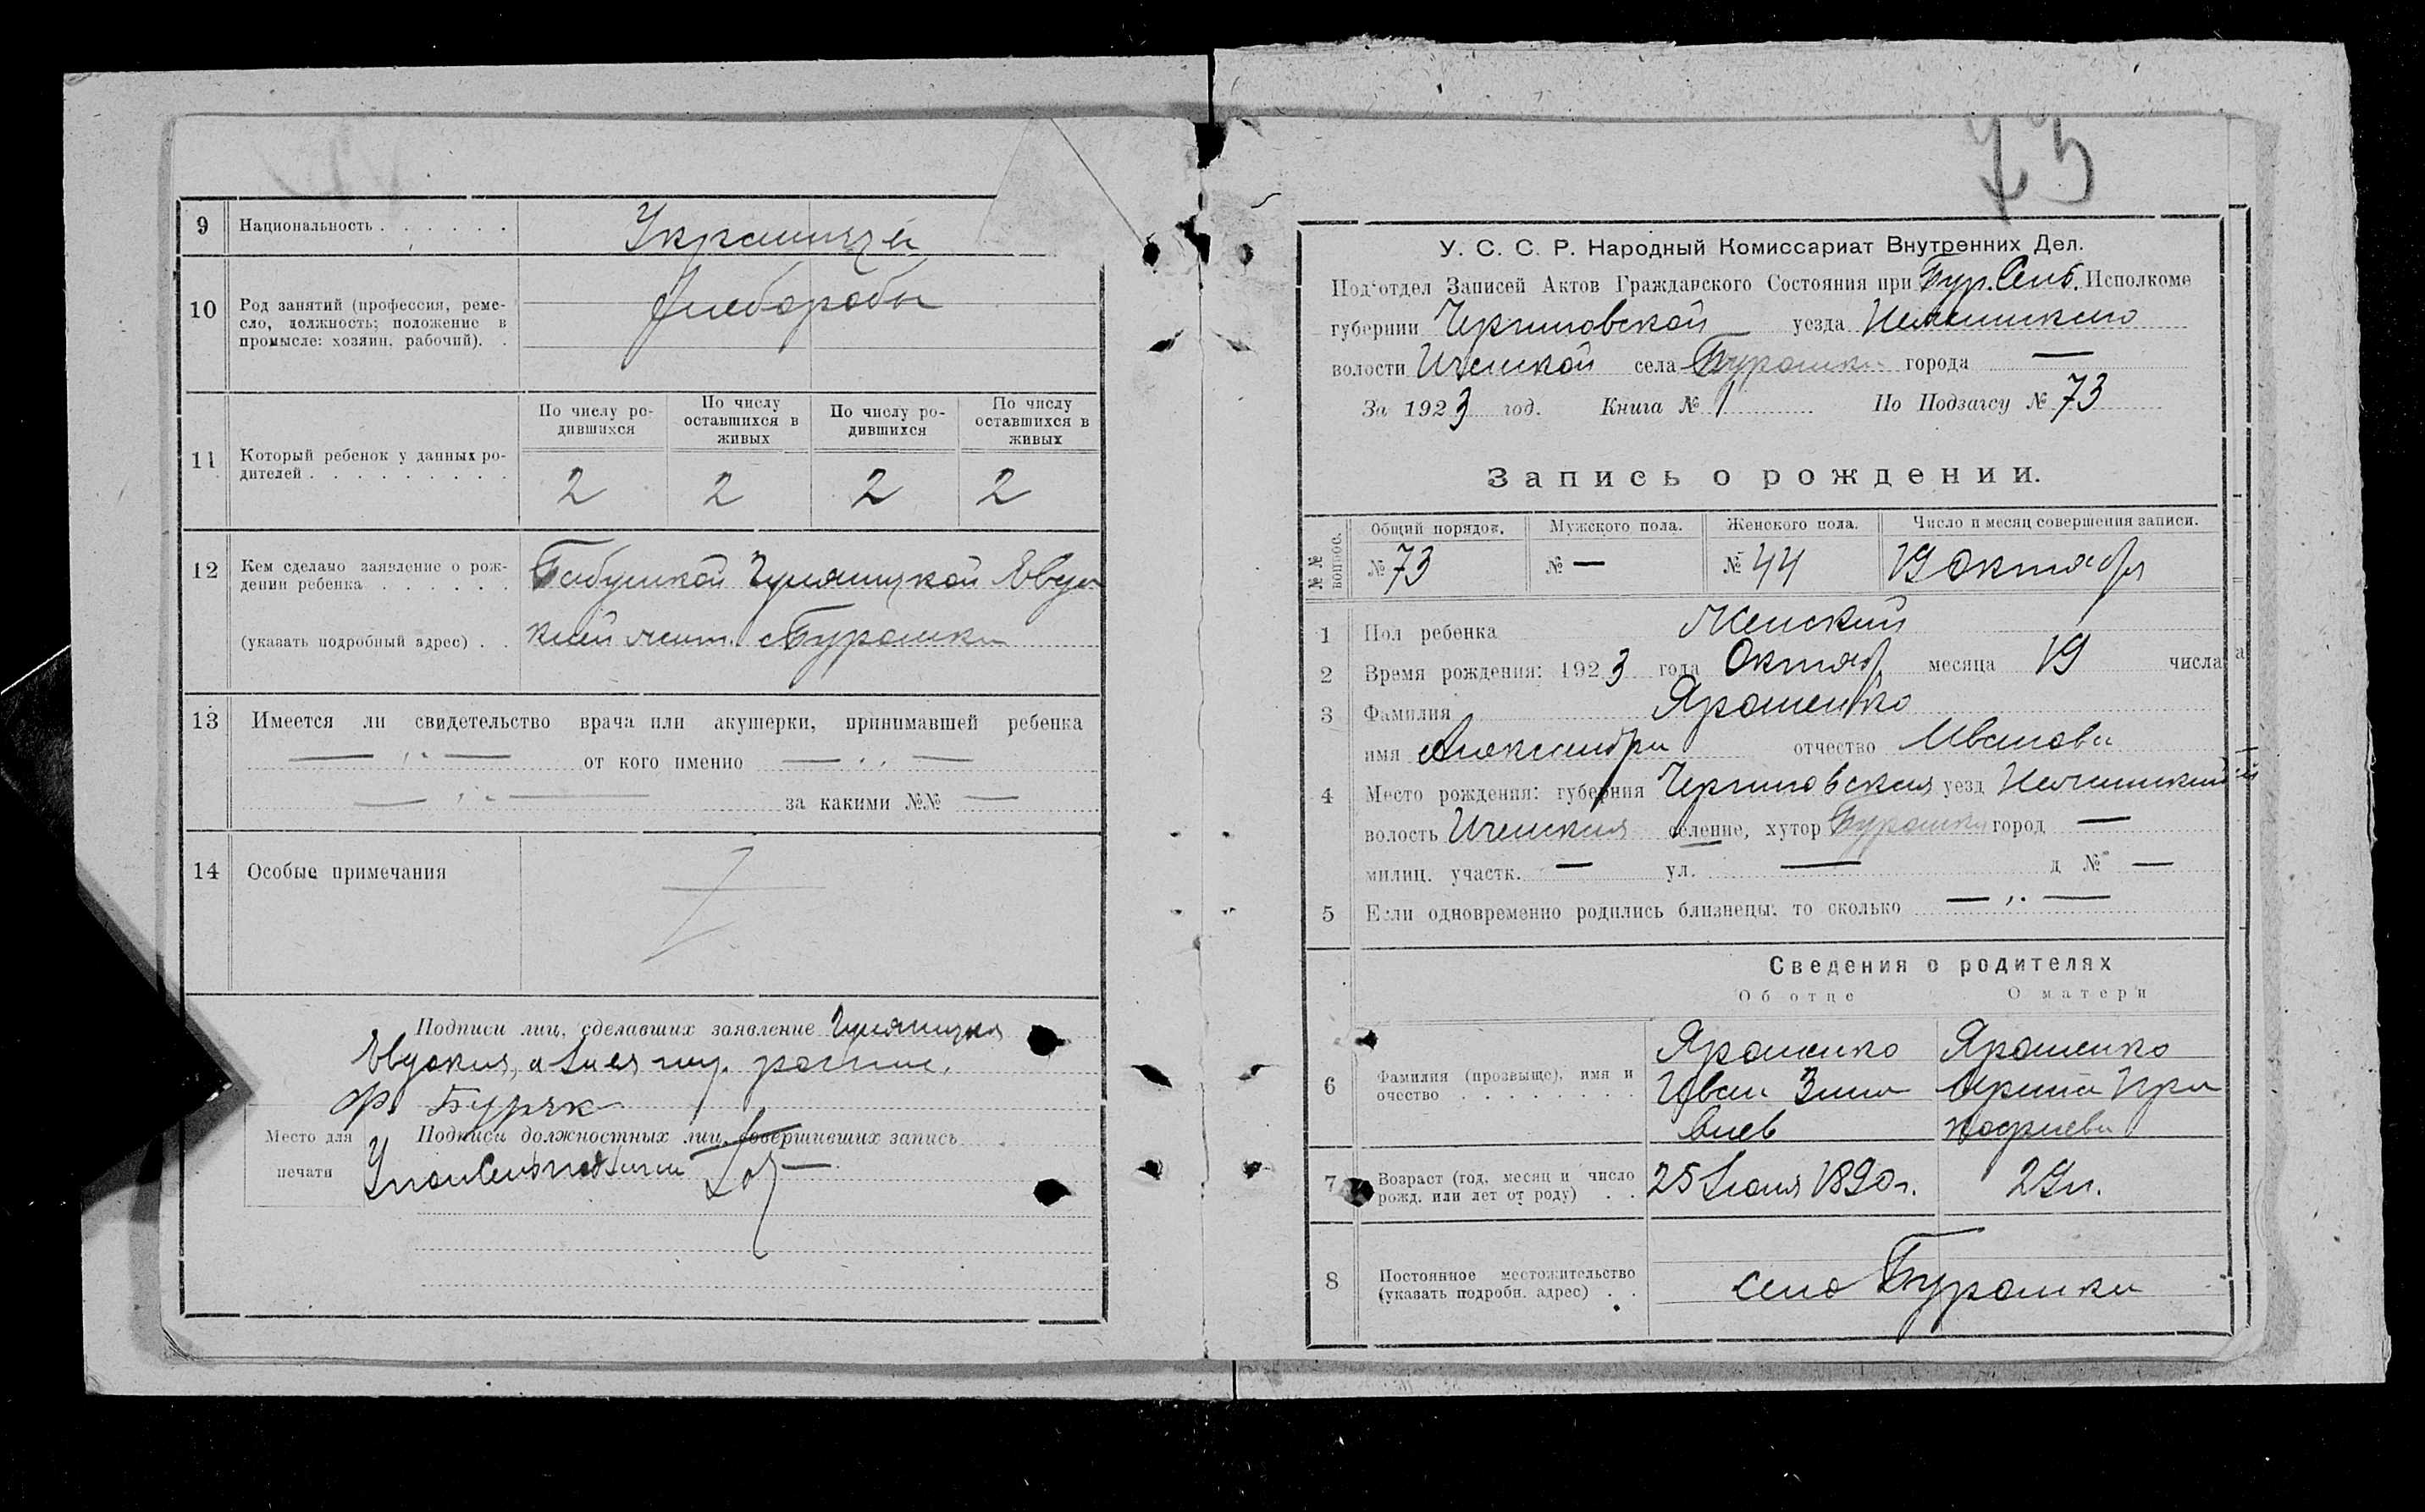 9 Национальность Украинцы
10 Род занятий (профессия, реме-
сло, должность; положение в
промысле: хозяин, рабочий).
Хлеборобы
По числу ро-
дившихся
По числу
оставшихся в
живых
По числу ро-
дившихся
По числу
оставшихся в
живых
11 Который ребенок у данных ро-
дителей
2 2 2 2
12 Кем сделано заявление о рож-
дении ребенка
(указать подробный адрес)
Бабушкой Евдо
кией жит. с Бурошки
13 Имеется ли свидетельство врача или акушерки, принимавшей ребенка
— " — от кого именно — " —
— " — за какими №№ —
14 Особые примечания
Подписи лиц, сделавших заявление
Евдокия, а за ея
Ф. Буряк
Место для
печати
Подписи должностных лиц, совершивших запись
75
У. С. С. Р. Народный Комиссариат Внутренних Дел.
Под'отдел Записей Актов Гражданского Состояния при Бур. Сельб. Исполкоме
губернии Черниговской уезда Нежинского
волости Иченской села Бурошки города —
За 1923 год. Книга № 1 По Подзагсу № 73
Запись о рождении.
№№ вопрос.
Общий порядок. Мужского пола. Женского пола. Число и месяц совершения записи.
№ 73 № — № 44 19 Октября
1 Пол ребенка Женский
2 Время рождения: 1923 года Октяб месяца 19 числа
3 Фамилия Ярошенко
имя Александра отчество Иванова
4 Место рождения: губерния Черниговская уезд Нежинский
волость Иченская селение, хутор Бурошки город —
милиц. участк. — ул. — д № —
5 Если одновременно родились близнецы, то сколько — " —
Сведения о родителях
Об отце О матери
6 Фамилия (прозвыще), имя и
очество
Ярошенко Ярошенко
Иван Зино Ирина Про
виев
7 Возраст (год, месяц и число
рожд. или лет от роду)
25 1890 г. 29 л.
8 Постоянное местожительство
(указать подробн. адрес)
село Бурошки